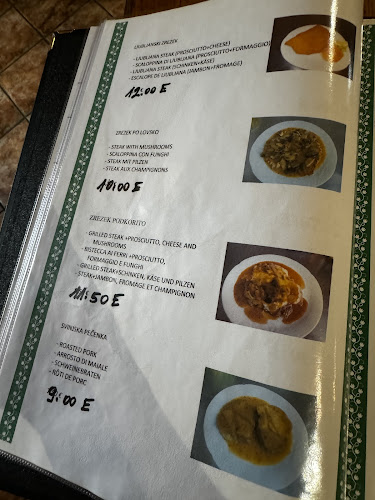 LJUBLJANSKI ZREZEK
- LJUBLJANA STEAK (PROSCIUTTO+CHEESE)
- SCALOPPINA DI LJUBLJANA (PROSCIUTTO+FORMAGGIO)
- LJUBLJANA STEAK (SCHINKEN+KÄSE)
- ESCALOPE DE LJUBLJANA (JAMBON+FROMAGE)
12:00 E
ZREZEK PO LOVSKO
- STEAK WITH MUSHROOMS
- SCALOPPINA CON FUNGHI
- STEAK MIT PILZEN
- STEAK AUX CHAMPIGNONS
10:00 E
ZREZEK PODKORITO
- GRILLED STEAK +PROSCIUTTO, CHEESE AND
MUSHROOMS
- BISTECCA AI FERRI +PROSCIUTTO,
FORMAGGIO E FUNGHI
- GRILLED STEAK+SCHINKEN, KÄSE UND PILZEN
- STEAK+JAMBON, FROMAGE ET CHAMPIGNON
11:50 E
SVINJSKA PEČENKA
- ROASTED PORK
- ARROSTO DI MAIALE
- SCHWEINEBRATEN
- RÔTI DE PORC
9:00 E